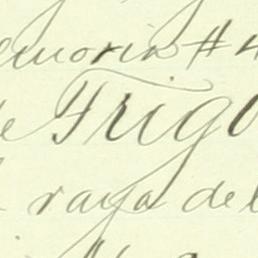 emoria #4
de Trigo
l raya del